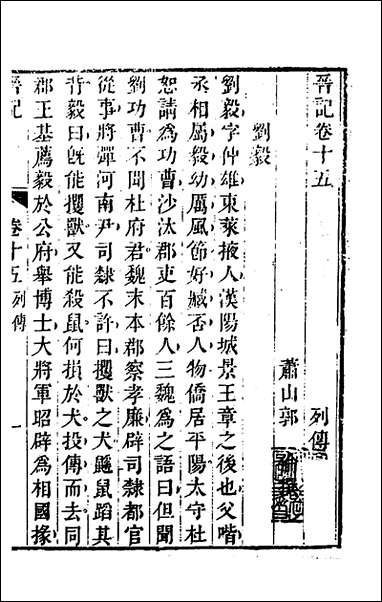 晉記卷十五
列傳
蕭山郭
劉毅
劉毅字仲雄東萊掖人漢陽城景王章之後也父喈
丞相屬毅幼厲風節好臧否人物僑居平陽太守杜
恕請爲功曹沙汰郡吏百餘人三魏爲之語曰但聞
劉功曹不聞杜府君魏末本郡察孝廉辟司隸都官
從事將彈河南尹司隸不許曰攫獸之犬鼷鼠蹈其
背毅曰旣能攫獸又能殺鼠何損於犬投傳而去同
郡王基薦毅於公府舉博士大將軍昭辟爲相國掾
晉記
卷十五列傳
一